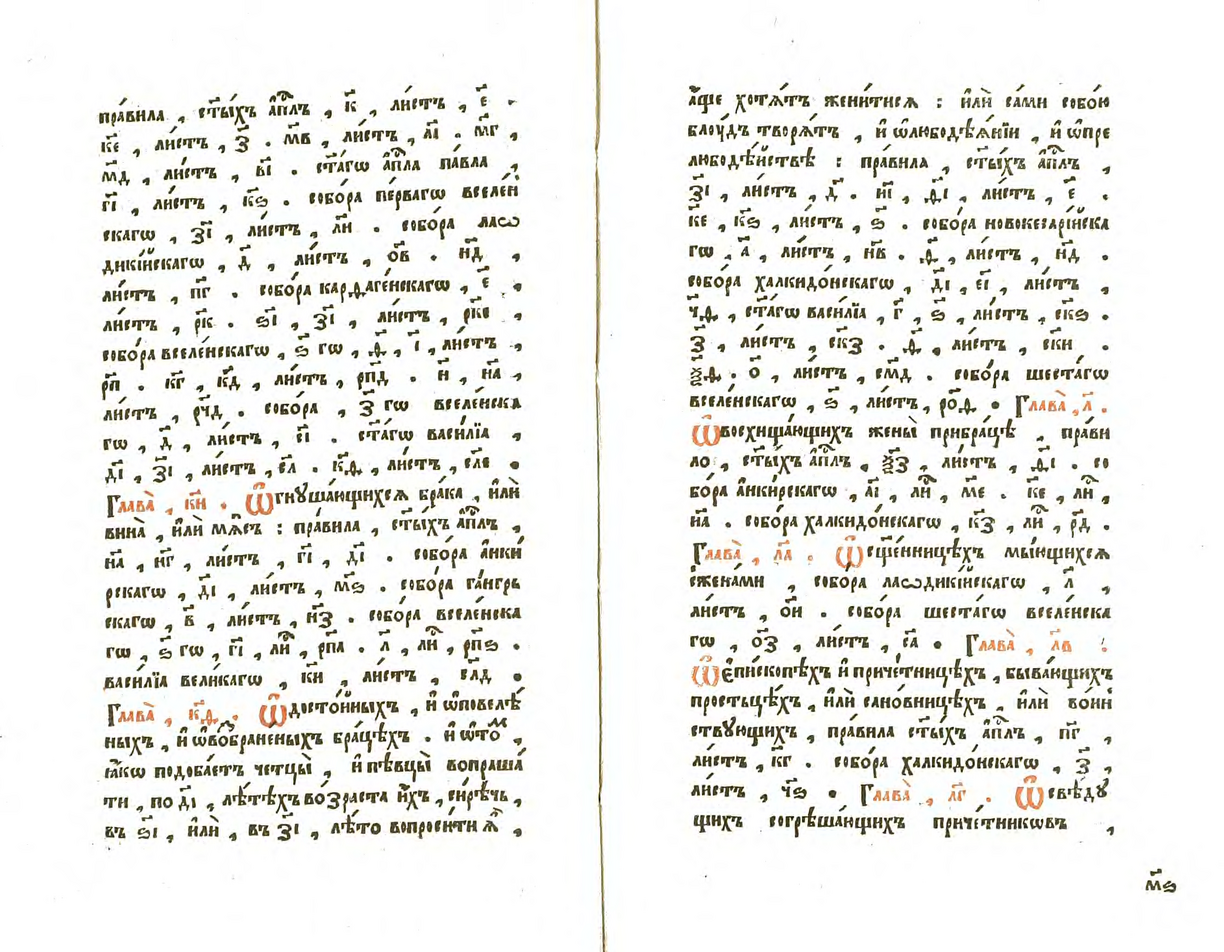 пра́вила , ст҃ы́хъ а҆пⷭ҇лъ , к҃ , ли́стъ , е҃ .
к҃е , ли́стъ , з҃ . м҃в , ли́стъ , а҃і . м҃г ,
м҃д , ли́стъ , в҃і . ст҃а́гѡ а҆пⷭ҇ла па́вла ,
г҃і , ли́стъ , к҃ѕ . собо́ра пе́рвагѡ вселе́н
скагѡ , з҃і , ли́стъ , л҃и . собо́ра лаѡ
дикі́йскагѡ , д҃ , ли́стъ , о҃в . н҃д ,
ли́стъ , п҃г . собо́ра карѳаге́нскагѡ , е҃ ,
ли́стъ , р҃к . ѕ҃і , з҃і , ли́стъ , р҃ке ,
собо́ра вселе́нскагѡ , ѕ҃ гѡ , ѳ҃ , і҃ , ли́стъ ,
р҃п . к҃г , к҃д , ли́стъ , р҃пд . н҃ , н҃а ,
ли́стъ , р҃чд . собо́ра , з҃ гѡ вселе́нска
гѡ , д҃ , ли́стъ , с҃і . ст҃а́гѡ васи́лїа ,
д҃і , з҃і , ли́стъ , с҃л . к҃ѳ , ли́стъ , с҃ле .
Глава̀ , к҃и . Ѿгнꙋша́ющихсѧ бра́ка , и҆лѝ
вина̀ , и҆лѝ мѧ́съ : пра́вила , ст҃ы́хъ а҆пⷭ҇лъ ,
н҃а , н҃г , ли́стъ , г҃і , д҃і . собо́ра а҆нки́
рскагѡ , д҃і , ли́стъ , м҃ѕ . собо́ра га́нгрь
скагѡ , в҃ , ли́стъ , н҃з . собо́ра вселе́нска
гѡ , ѕ҃ гѡ , г҃і , лиⷭ҇ , р҃па . л҃ , лиⷭ҇ , р҃пѕ .
васи́лїа вели́кагѡ , к҃и , ли́стъ , с҃лд .
Глава̀ , к҃ѳ . Ѿдосто́йныхъ , и҆ ѡ҆повелѣ́
ныхъ , и҆ ѡ҆во́бране́ныхъ бра́цѣхъ . и҆ ѡ҆то́ⷨ ,
ꙗ҆́кѡ подоба́етъ четцы̀ , и҆ пѣвцы̀ вопраша́
ти , по д҃і , лѣ́тѣхъ во́зраста и҆́хъ , си́рѣчь ,
въ ѕ҃і , и҆лѝ , въ з҃і , лѣ́то вопроси́ти ѧ҆̀ ,
а҆́ще хотѧ́тъ жени́тисѧ : и҆лѝ са́ми собо́ю
блоу́дъ творѧ́тъ , и҆ ѡ҆любодѣѧ́нїи , и҆ ѡ҆пре
любодѣ́йствѣ : пра́вила , ст҃ы́хъ а҆пⷭ҇лъ ,
з҃і , ли́стъ , д҃ . и҃і , ѳ҃і , ли́стъ , е҃ .
к҃е , к҃ѕ , ли́стъ , ѕ҃ . собо́ра новокесарі́йска
гѡ , а҃ , ли́стъ , н҃в . ѳ҃ , ли́стъ , н҃д .
собо́ра халкидо́нскагѡ , д҃і , е҃і , ли́стъ ,
ч҃ѳ , ст҃а́гѡ васи́лїа , г҃ , ѕ҃ , ли́стъ , с҃кѕ .
з҃ , ли́стъ , с҃кз . ѳ҃ , ли́стъ , с҃ки .
ѯ҃ѳ . о҃ , ли́стъ , с҃мд . собо́ра шеста́гѡ
вселе́нскагѡ , ѕ҃ , ли́стъ , р҃оѳ . Глава̀ , л҃ .
Ѿвосхища́ющихъ жены̀ прибра́цѣ , пра́ви
ло , ст҃ы́хъ а҆пⷭ҇лъ , ѯ҃з , ли́стъ , ѳ҃і . со
бо́ра а҆нки́рскагѡ , а҃і , лиⷭ҇ , м҃е . к҃е , лиⷭ҇ ,
н҃а . собо́ра халкидо́нскагѡ , к҃з , лиⷭ҇ , р҃д .
Глава̀ , л҃а . Ѿсщ҃е́нницѣхъ мы́ющихсѧ
сжена́ми , собо́ра лаѡдикі́йскагѡ , л҃ ,
ли́стъ , о҃и . собо́ра шеста́гѡ вселе́нска
гѡ , о҃з , ли́стъ , с҃а . Глава̀ , л҃в :
Ѿєпископѣхъ и҆ приче́тницѣхъ , быва́ющихъ
простьцѣ́хъ , и҆лѝ сано́вницѣхъ , и҆лѝ во́ин
ствꙋющихъ , пра́вила ст҃ы́хъ а҆пⷭ҇лъ , п҃г ,
ли́стъ , к҃г . собо́ра халкидо́нскагѡ , з҃ ,
ли́стъ , ч҃ѕ . Глава̀ , л҃г . Ѿсвѣ́дꙋ
щихъ согрѣша́ющихъ приче́тникѡвъ ,
м҃ѕ